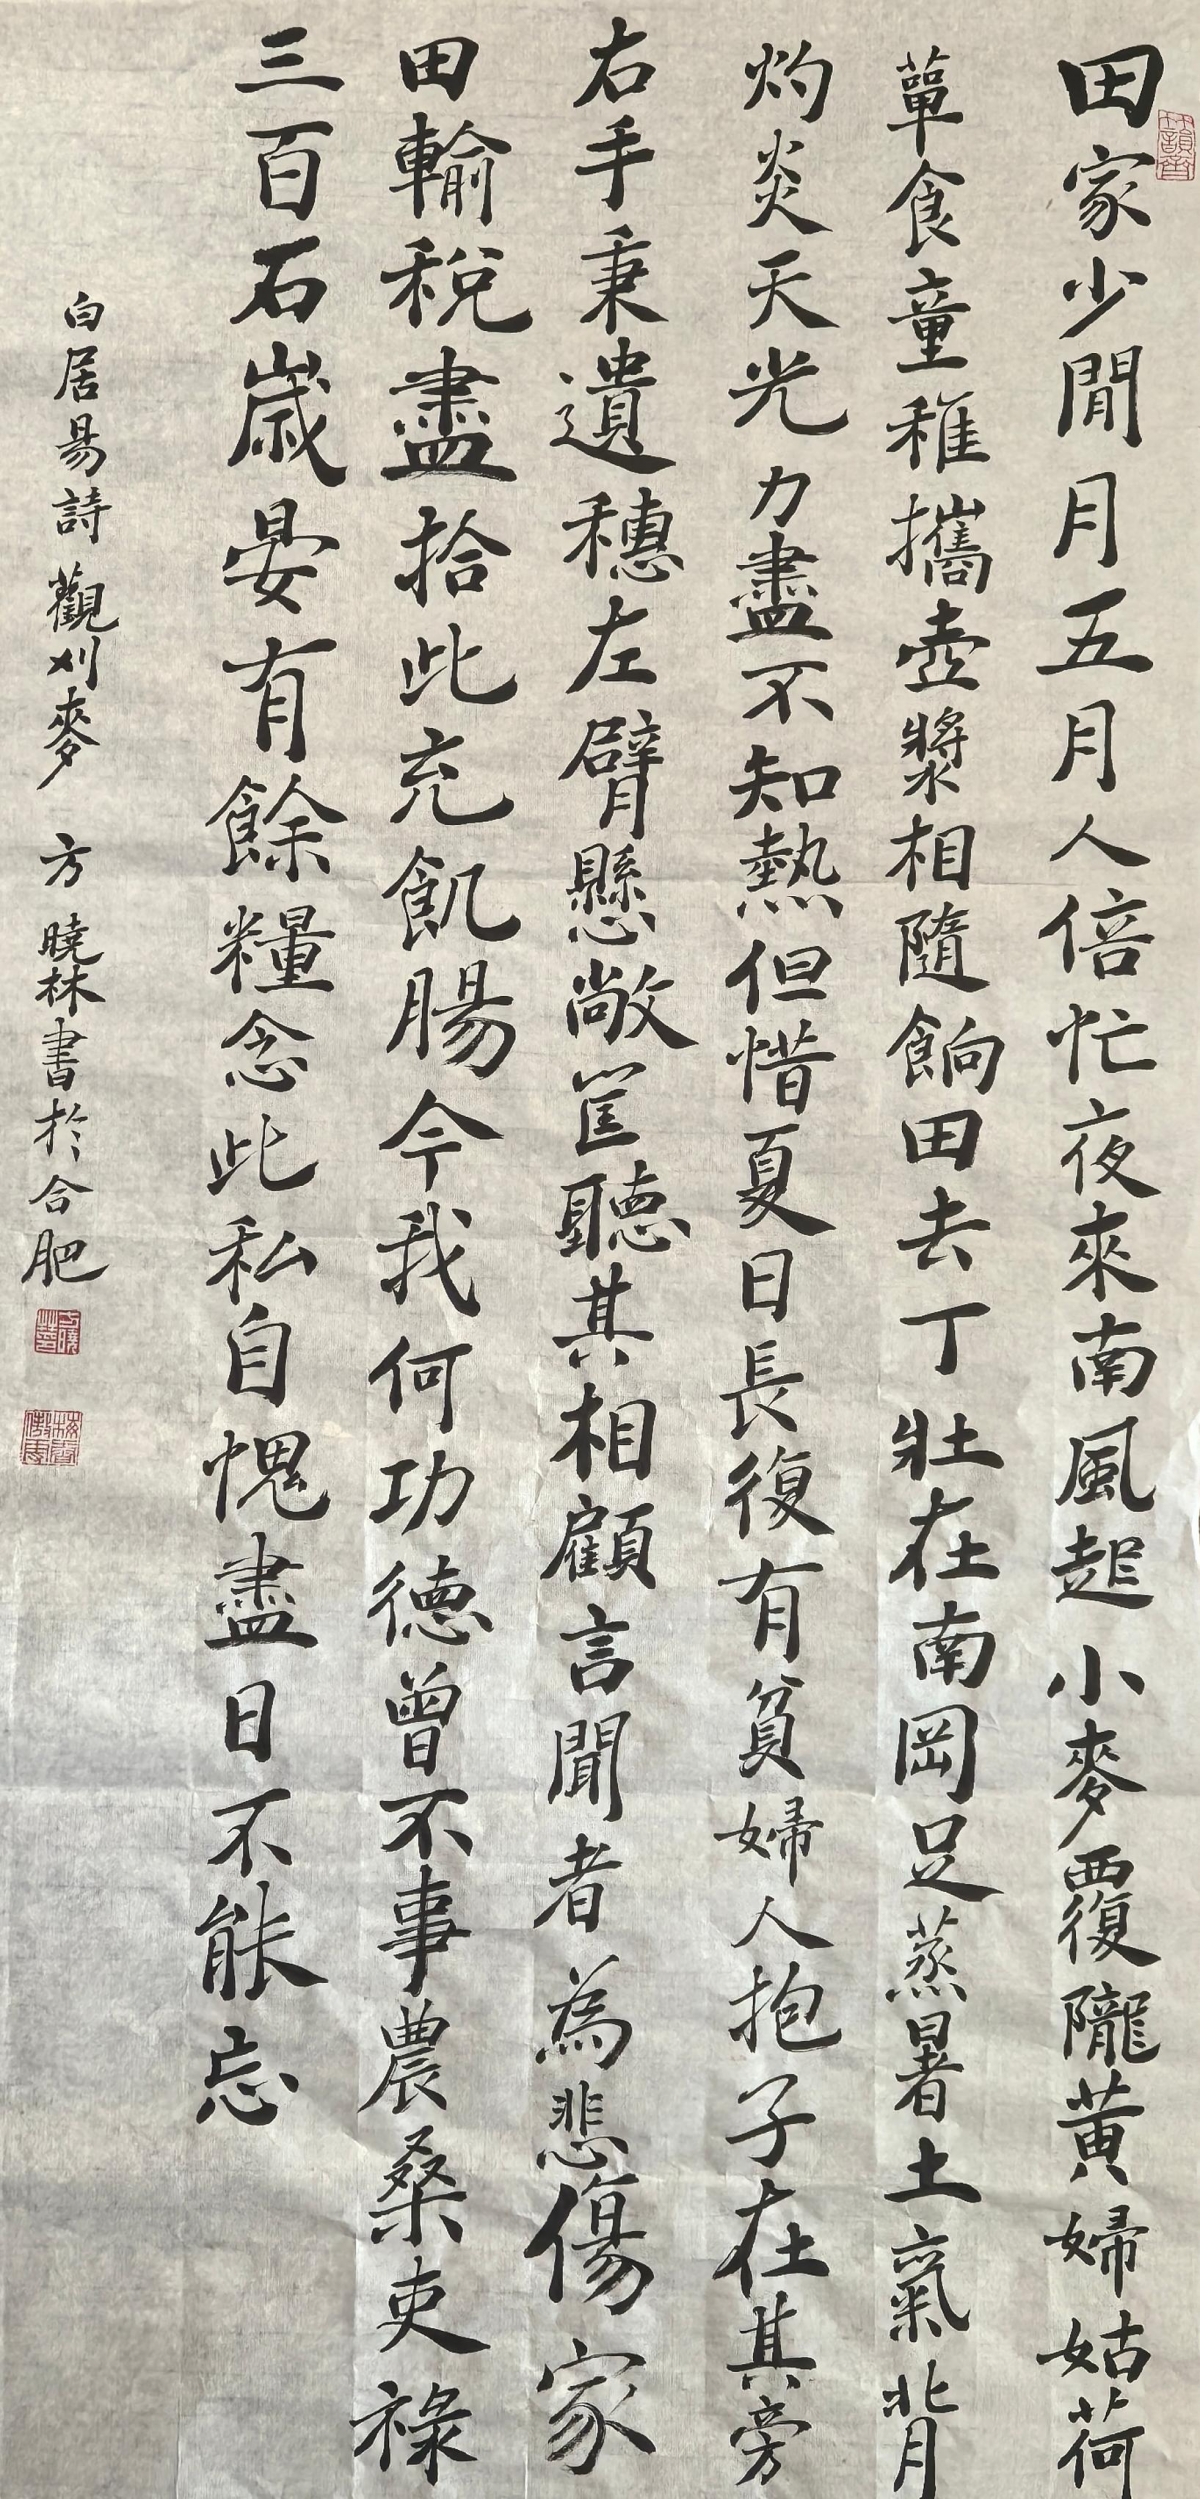 田家少閒月五月人倍忙夜來南風起小麥覆隴黃婦姑荷
簞食童稚攜壺漿相隨餉田去丁壯在南岡足蒸暑土氣背
灼炎天光力盡不知熱但惜夏日長復有貧婦人抱子在其旁
右手秉遺穗左臂懸敝筐聽其相顧言聞者為悲傷家
田輸稅盡拾此充飢腸今我何功德曾不事農桑吏祿
三百石歲晏有餘糧念此私自愧盡日不能忘
白居易詩觀刈麥 方曉林書於合肥